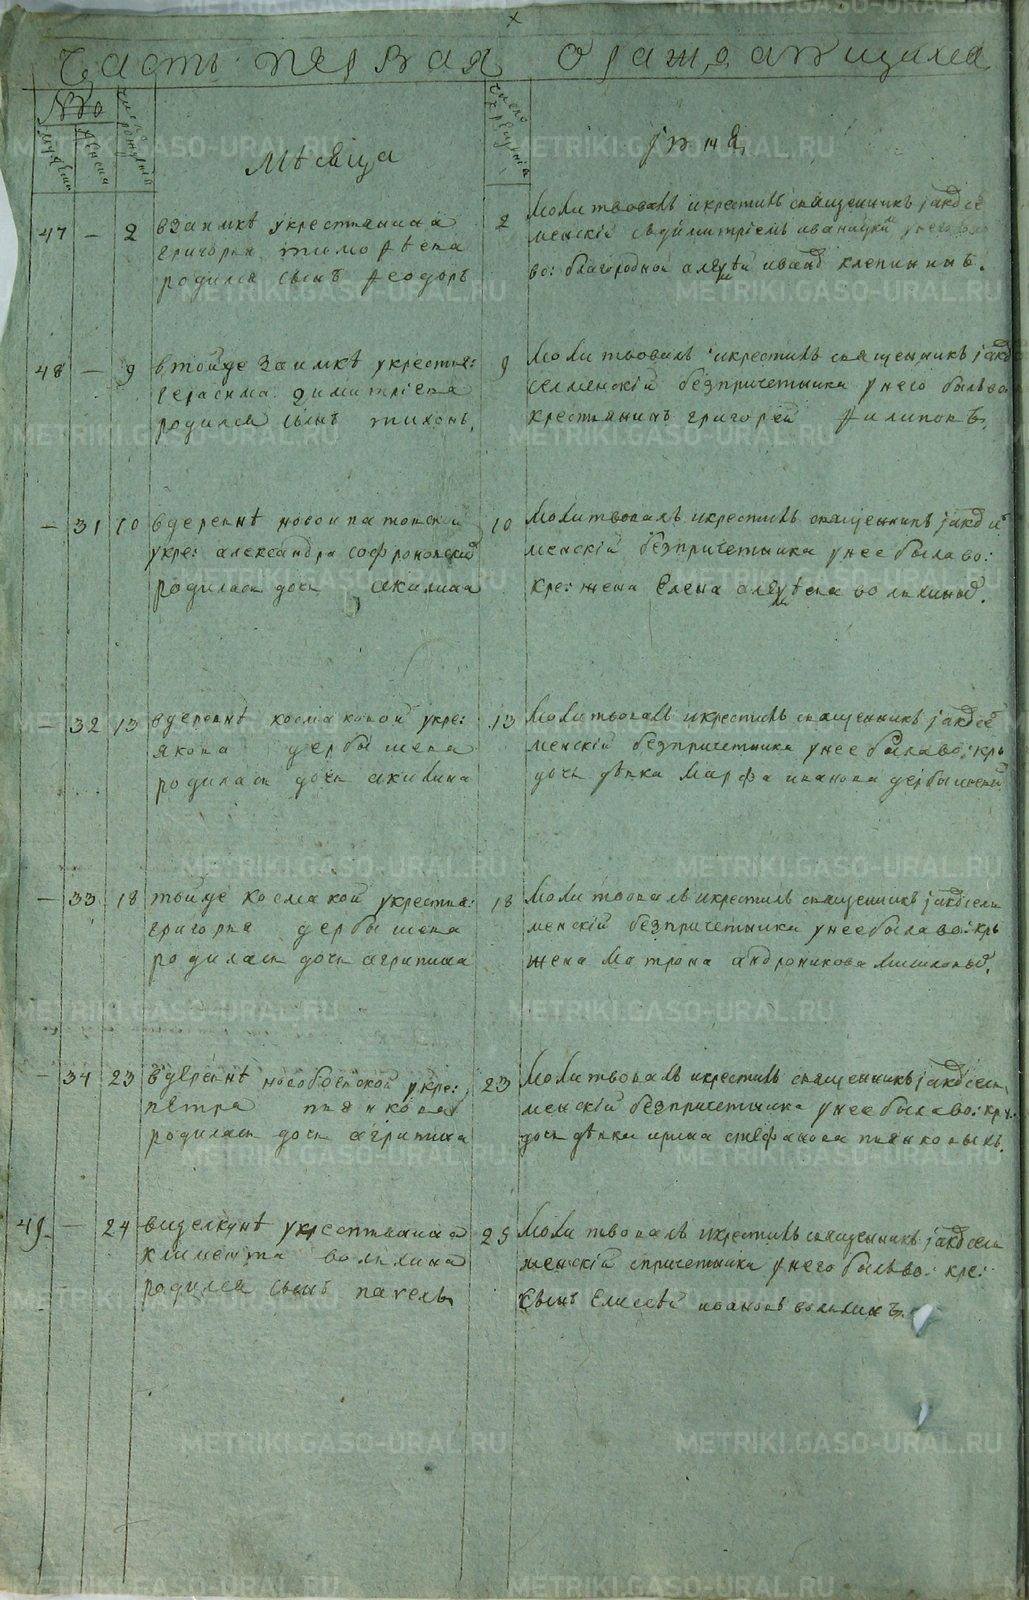 Часть первая о раждающихся
№ро
число рождения
число крещения
мужеска
женска
Месяца
Iюня
47 — 2 взаимкѣ укрестьянина
григорья тимофѣева
родился сынъ Феодоръ
2 Молитвовалъ икрестилъ священникъ
менскiй
во: благородной иванъ клепининъ.
48 — 9 втойже заимкѣ укрестья:
герасима димитрiева
родился сынъ тихонъ,
9 Молитвовалъ икрестилъ священникъ
селменскiй безпричетника унего былъ во
крестьянинъ григорей Филиповъ,
— 31 10 вдеревнѣ новоипатовской
укре: александра софроновскихъ
родилась дочь акилина
10 Молитвовалъ икрестилъ священникъ
менскiй безпричетника унее была во:
кре: жена Елена
— 32 13 вдеревнѣ космаковой укре:
якова дербышева
родилась дочь акилина
13 Молитвовалъ икрестилъ священникъ
менскiй безпричетника унее была во: кръ
дочь дѣвка Марфа иванова дербышевыхъ
— 33 18 тойже космакой укрестья:
григорья дербышева
родилась дочь агрипина
18 Молитвовалъ икрестилъ священникъ
менскiй безпричетника унее была во: кръ
жена Матрона андроникова
— 34 23 вдеревнѣ укре:
петра пьянкова
родилась дочь агрипина
23 Молитвовалъ икрестилъ священникъ
менскiй безпричетника унее была во: кръ
дочь дѣвка ирина стефанова пьянковыхъ.
49 — 24 виделкунѣ укрестьянина
климента волылина
родился сынъ павелъ
25 Молитвовалъ икрестилъ священникъ
менскiй спричетники унего былъ во: кре:
сынъ Елисѣй ивановъ
METRIKI.GASO-URAL.RU